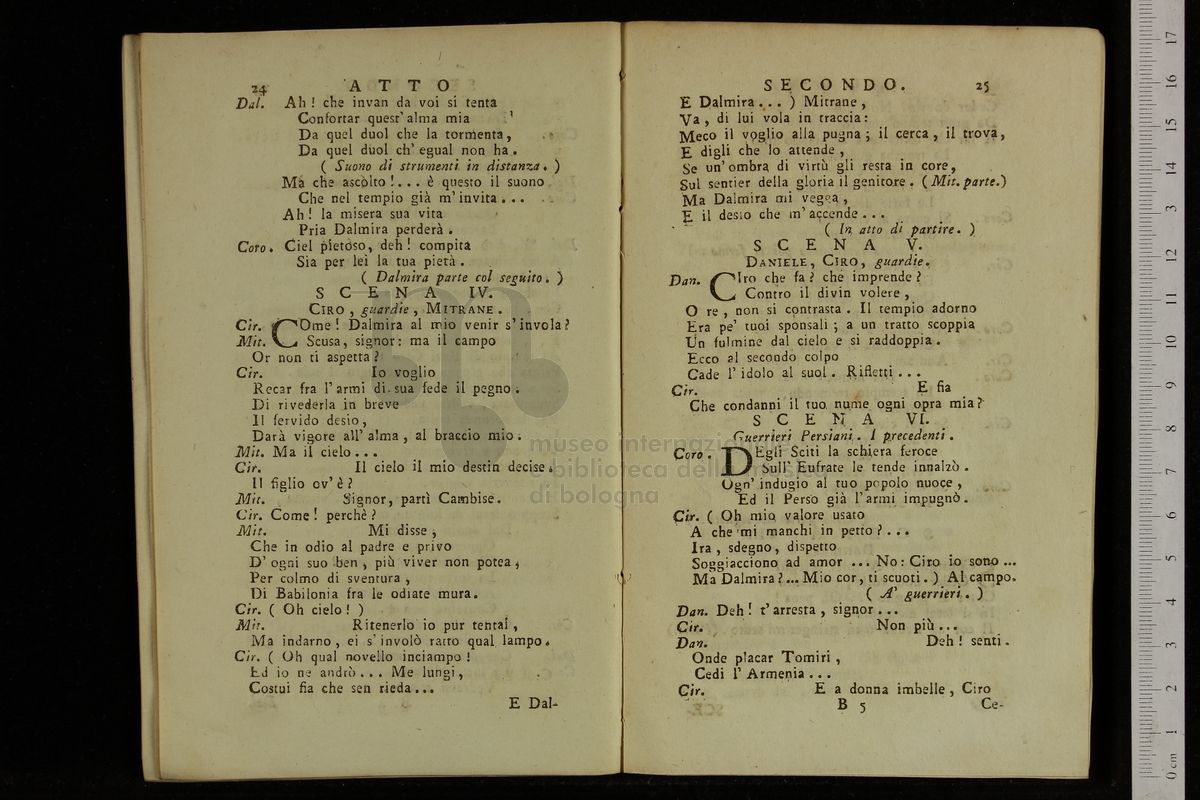 24 ATTO
Dal. Ah! che invan da voi si tenta
Confortar quest' alma mia
Da quel duol che la tormenta,
Da quel duol ch' egual non ha.
( Suono di strumenti in distanza. )
Ma che ascolto!... è questo il suono
Che nel tempio già m' invita...
Ah! la misera sua vita
Pria Dalmira perderà.
Coro. Ciel pietoso, deh! compita
Sia per lei la tua pietà.
( Dalmira parte col seguito. )
SCENA IV.
CIRO, guardie, MITRANE.
Cir. COme! Dalmira al mio venir s' invola?
Mit. Scusa, signor: ma il campo
Or non ti aspetta?
Cir. Io voglio
Recar fra l' armi di sua fede il pegno.
Di rivederla in breve
Il fervido desio,
Darà vigore all' alma, al braccio mio.
Mit. Ma il cielo...
Cir. Il cielo il mio destin decise.
Il figlio ov' è?
Mit. Signor, partì Cambise.
Cir. Come! perchè?
Mit. Mi disse,
Che in odio al padre e privo
D' ogni suo ben, più viver non potea,
Per colmo di sventura,
Di Babilonia fra le odiate mura.
Cir. ( Oh cielo! )
Mit. Ritenerlo io pur tentai,
Ma indarno, ei s' involò ratto qual lampo.
Cir. ( Oh qual novello inciampo!
Ed io ne andrò... Me lungi,
Costui fia che sen rieda...
E Dal-
SECONDO. 25
E Dalmira... ) Mitrane,
Va, di lui vola in traccia:
Meco il voglio alla pugna; il cerca, il trova,
E digli che lo attende,
Se un' ombra di virtù gli resta in core,
Sul sentier della gloria il genitore. (Mit. parte.)
Ma Dalmira mi vegga,
E il desio che m' accende...
( In atto di partire. )
SCENA V.
DANIELE, CIRO, guardie.
Dan. CIro che fa? che imprende?
Contro il divin volere,
O re, non si contrasta. Il tempio adorno
Era pe' tuoi sponsali; a un tratto scoppia
Un fulmine dal cielo e si raddoppia.
Ecco al secondo colpo
Cade l' idolo al suol. Rifletti...
Cir. E fia
Che condanni il tuo nume ogni opra mia?
SCENA VI.
Guerrieri Persiani. I precedenti.
Coro. DEgli Sciti la schiera feroce
Sull' Eufrate le tende innalzò.
Ogn' indugio al tuo popolo nuoce,
Ed il Perso già l' armi impugnò.
Cir. ( Oh mio valore usato
A che mi manchi in petto?...
Ira, sdegno, dispetto
Soggiacciono ad amor ... No: Ciro io sono...
Ma Dalmira?... Mio cor, ti scuoti. ) Al campo.
( A' guerrieri. )
Dan. Deh! t' arresta, signor...
Cir. Non più...
Dan. Deh! senti.
Onde placar Tomiri,
Cedi l' Armenia...
Cir. E a donna imbelle, Ciro
B 5 Ce-
museo internazionale
e biblioteca della musica
di bologna
0 cm 1 2 3 4 5 6 7 8 9 10 11 12 13 14 15 16 17